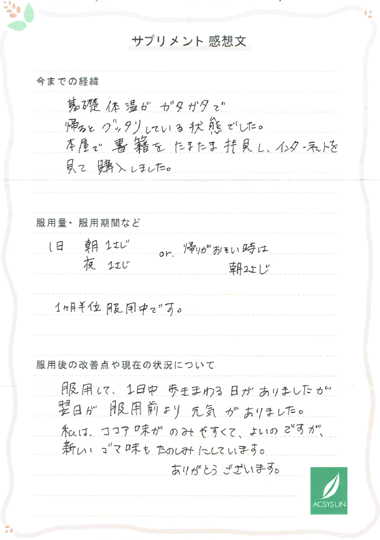 サプリメント 感想文
今までの経緯
基礎体温が ガタガタで
帰ると グッタリしている 状態でした。
本屋で 書籍を たまたま 拝見し、インターネットを
見て 購入しました。
服用量・服用期間など
1日 朝 1さじ or. 帰りがおそい時は
夜 1さじ 朝2さじ
1ヶ月半位 服用中です。
服用後の改善点や現在の状況について
服用して、1日中 歩きまわる 日が ありましたが
翌日が 服用前より 元気 が ありました。
私は、ココア味が のみやすくて、よいの ですが、
新しい ゴマ味も たのしみにしています。
ありがとう ございます。
ACSYSUN